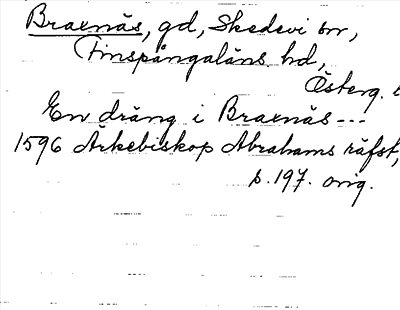 Braxnäs, gd, Skedevi sn,
Finspångaläns hd,
Österg. l
En dräng i Braxnäs ---
1596 Ärkebiskop Abrahams räfst,
s. 197. orig.